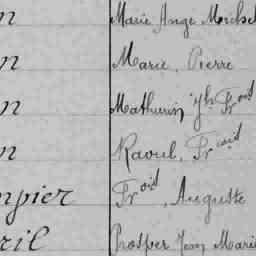 n Marie Ange Michel
n Marie, Pierre
n Mathurin Jh Frois
n Raoul, Frois
npier Frois, Auguste
ril Prosper Jean Marie